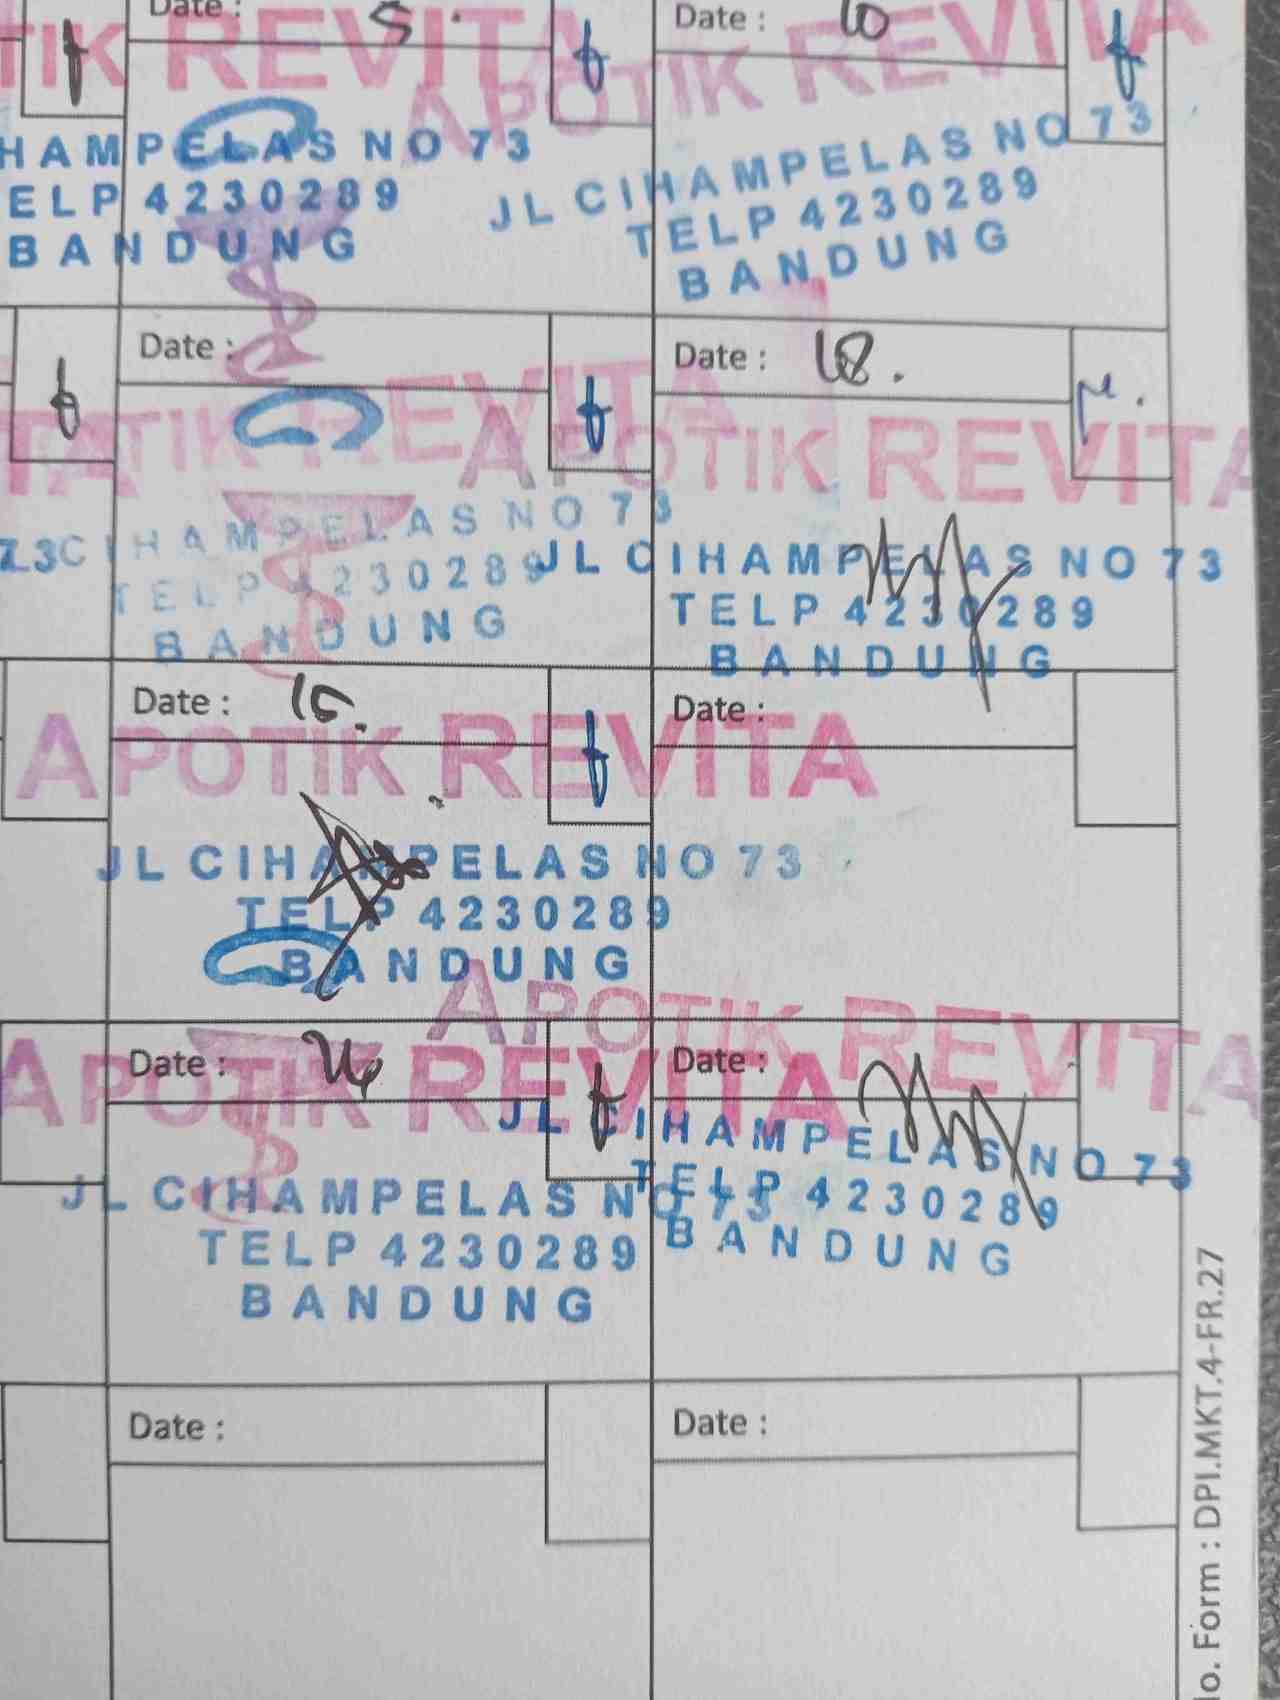 Date : 5.
Date : 10
TIK REVITA
APOTIK REVITA
HAMPELAS NO 73
ELP 4230289
BANDUNG
JL CIHAMPELAS NO 73
TELP 4230289
BANDUNG
Date :
Date : 18.
APOTIK REVITA
APOTIK REVITA
CIHAMPELAS NO 73
TELP 4230289
BANDUNG
JL CIHAMPELAS NO 73
TELP 4230289
BANDUNG
Date : 15.
Date :
APOTIK REVITA
JL CIHAMPELAS NO 73
TELP 4230289
BANDUNG
Date :
Date :
APOTIK REVITA
APOTIK REVITA
JL CIHAMPELAS NO 73
TELP 4230289
BANDUNG
JL CIHAMPELAS NO 73
TELP 4230289
BANDUNG
Date :
Date :
o. Form : DPI.MKT.4-FR.27